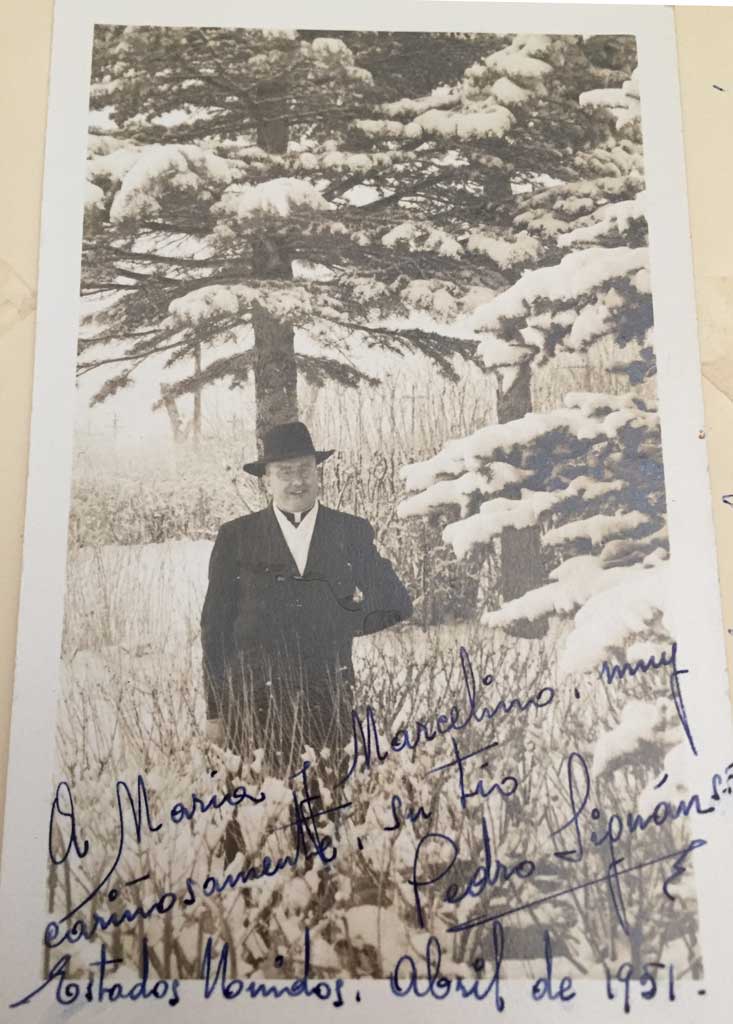 A Maria y Marcelino, muy
cariñosamente, su tío
Pedro Signán
Estados Unidos. Abril de 1951.